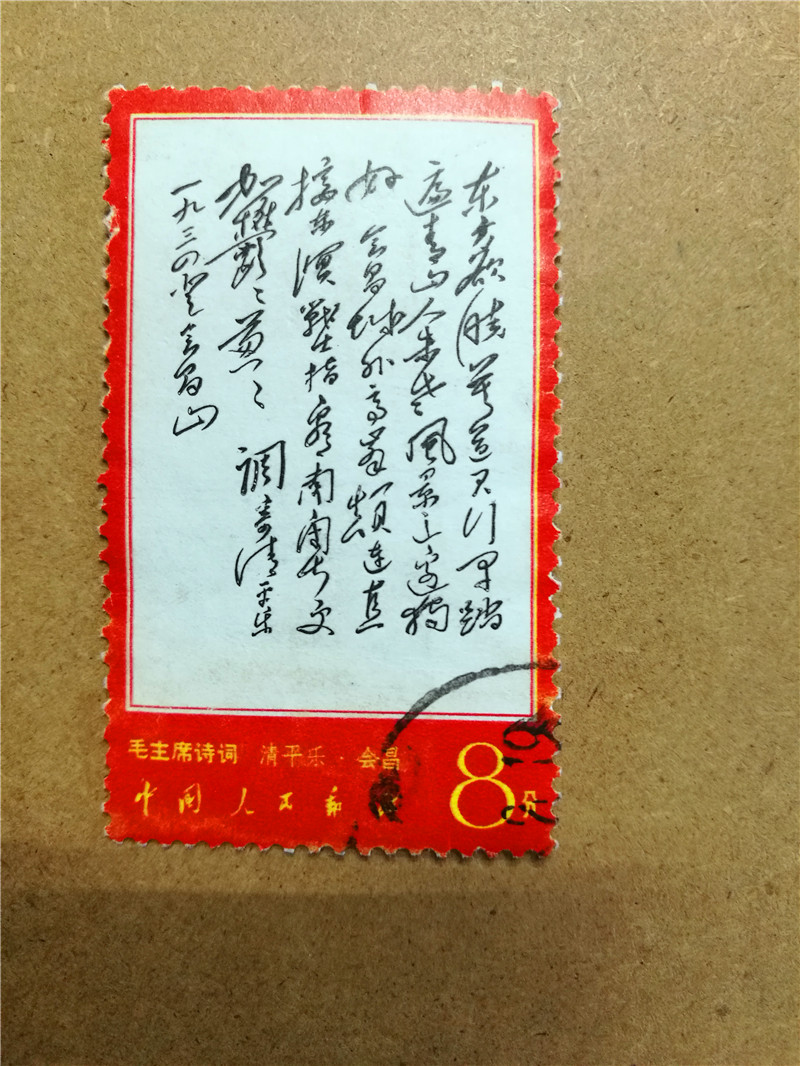 东方欲晓莫道君行早踏
遍青山人未老风景这边独
好会昌城外高峯颠连直
接东溟戰士指看南粤更
加欝〻葱〻 调寄清平乐
一九三四登会昌山
毛主席诗词 清平乐·会昌
中国人民邮
8分
19